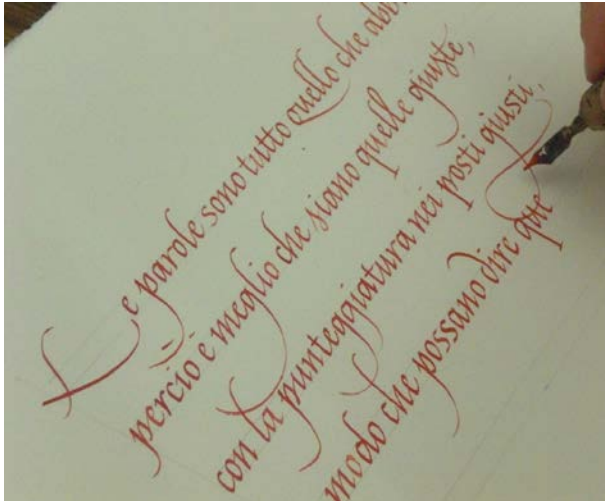 Le parole sono tutto quello che
perciò è meglio che siano quelle giuste,
con la punteggiatura nei posti giusti,
modo che possano dire que